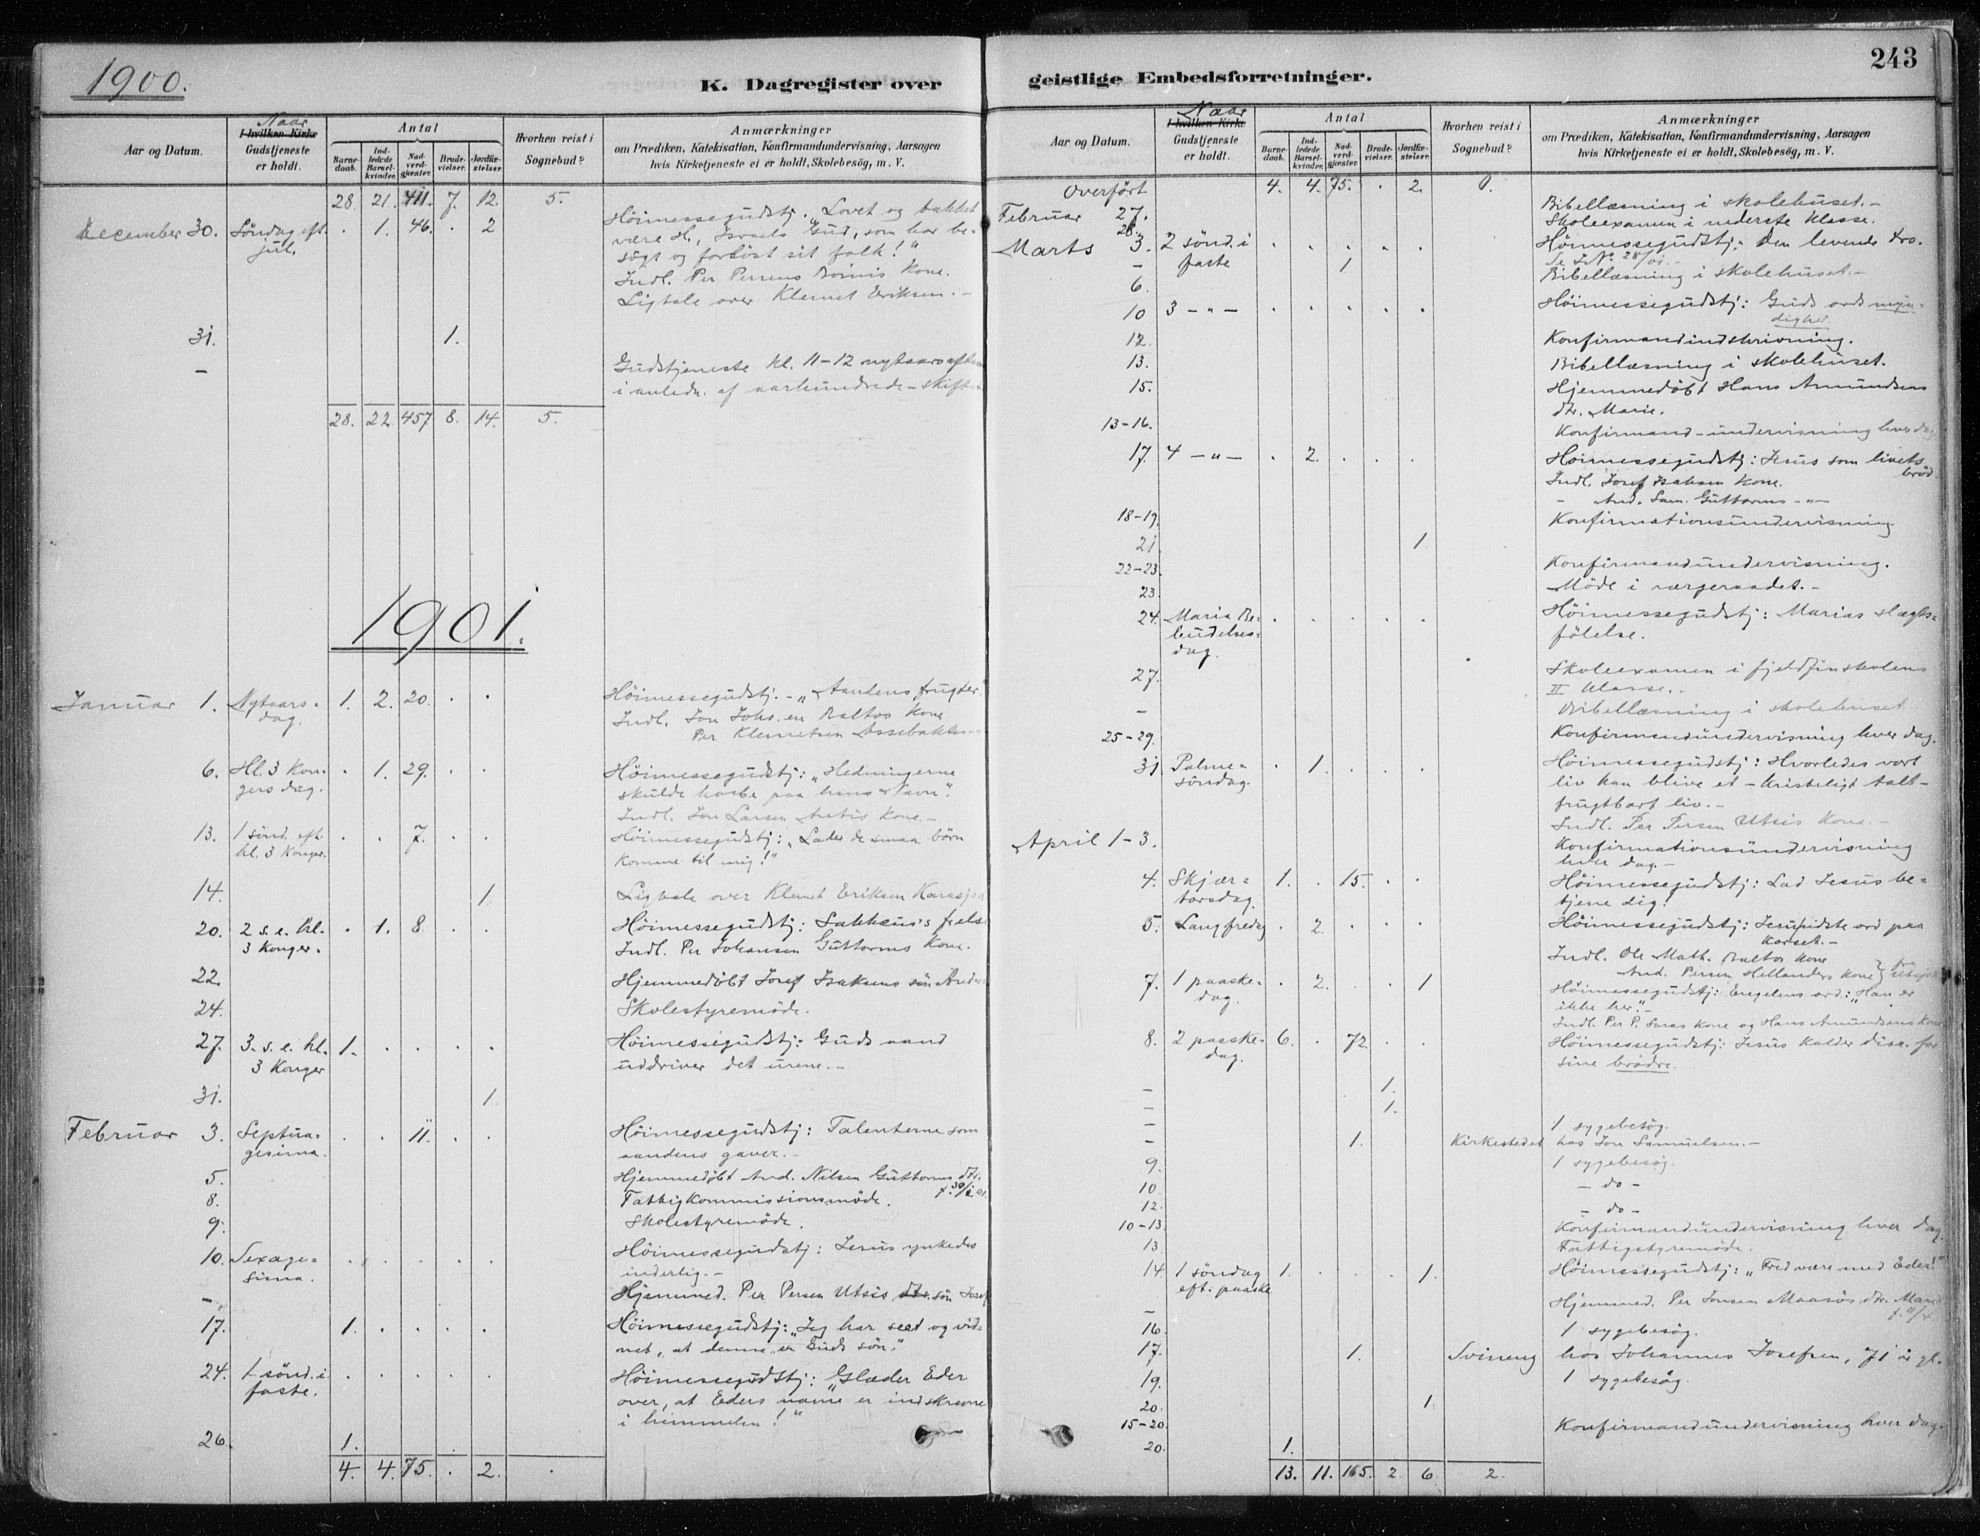 1900.
K. Dagregister over
Aar og Datum.
Naar
I hvilken Kirke
Gudstjeneste
er holdt.
Antal
Barne-
daab.
Ind-
ledede
Barsel-
kvinder.
Nad-
verd-
gjæster.
Brude-
vielser.
Jordfæ-
stelser.
Hvorhen reist i
Sognebud?
Anmærkninger
om Prædiken, Katekisation, Konfirmandundervisning, Aarsagen
hvis Kirketjeneste ei er holdt, Skolebesög, m. V.
28. 21. 411. 7. 12. 5.
December 30. Söndag eft. . 1. 46. . 2 Höimessegudstj. „Lovet og takket
jul. være H., Israels Gud, som har be-
sögt og forlöst sit folk!"
Indl. Per Persens Boinis Kone.
Ligtale over Klemet Eriksen. -
31. 1.
- Gudstjeneste kl. 11-12 nytaarsaften
i anledn. af aarhundrede-skifte
28. 22. 457. 8. 14. 5.
1901.
Januar 1. Nytaars- 1. 2. 20. . . Höimessegudstj. - „Aandens frugter."
dag. Indl. Jon Johs.en Baltos Kone
Per Klemetsen Assebaktes -
6. Hl. 3 Kon- . 1. 29. . . Höimessegudstj: „Hedningerne
gers dag. skulde haabe paa hans Navn".
Indl. Jon Larsen Kone. -
13. 1 sönd. eft. . . 7. . . Höimessegudstj: „Lader de smaa börn
hl. 3 Konger. komme til mig!"
14. 1. Ligtale over Klemet Eriksen Karasjok
20. 2 s. e. hl. . 1. 8. . . Höimessegudstj: Sakkæus's frelse
3 Konger. Indl. Per Johansen Guttorms Kone.
22. Hjemmedöbt Josef Isaksens sön
24. Skolestyremöde.
27. 3. s. e. hl. 1. . . . . Höimessegudstj: Guds aand
3 Konger uddriver det urene. -
31. 1.
Februar 3. Septua- . . 11. . . Höimessegudstj: Talenterne som
gesima. aandens gaver. -
5. Hjemmedöbt And. Nilsen Guttorms dtr.
8. Fattigkommissionsmöde.
9. Skolestyremöde.
10. Sexage- . . . . . Höimessegudstj: Jesus ynkedes
sima. inderlig. -
- Hjemmed. Per Persen Utsis dtr. sön Josef
17. 1. . . . . Höimessegudstj: „Jeg har seet og vid-
net, at denne er Guds sön."
24. 1 sönd. i . . . . . Höimessegudstj: „Glæder Eder
faste. over, at Eders navne er indskrevne
i himmelen!"
26. 1.
4. 4. 75. . 2. .
243
geistlige Embedsforretninger.
Aar og Datum.
Naar
I hvilken Kirke
Gudstjeneste
er holdt.
Antal
Barne-
daab.
Ind-
ledede
Barsel-
kvinder.
Nad-
verd-
gjæster.
Brude-
vielser.
Jordfæ-
stelser.
Hvorhen reist i
Sognebud?
Anmærkninger
om Prædiken, Katekisation, Konfirmandundervisning, Aarsagen
hvis Kirketjeneste ei er holdt, Skolebesög, m. V.
Overfört 4. 4. 75. . 2. 0.
Februar 27. Bibellæsning i skolehuset. -
28. Skoleexamen i nederste klasse.
Marts 3. 2 sönd. i . . . . . Höimessegudstj: Den levende tro.
- faste 1 Se J. No 28/01. -
6. Bibellæsning i skolehuset. -
10 3 - „ - . . . . . Höimessegudstj: Guds ords myn-
dighed.
12. Konfirmandindskrivning.
13. Bibellæsning i skolehuset.
15. Hjemmedöbt Hans Amundsens
dtr. Marie.
13-16. Konfirmand-undervisning hver dag
17. 4 - „ - . 2. . . . Höimessegudstj: Jesus som livets
bröd
Indl. Josef Isaksen Kone.
- And. Sam. Guttorms - „ -
18-19. Konfirmationsundervisning
21. 1
22-23. Konfirmandundervisning.
23. Möde i værgeraadet. -
24. Maria Be- . . . . . Höimessegudstj: Marias slægts-
budelses- fölelse.
dag.
27. Skoleexamen i fjeldfinskolens
II klasse. -
- Bibellæsning i skolehuset
25-29. Konfirmandundervisning hver dag.
31 Palme- . 1. . . . Höimessegudstj: Hvorledes vort
söndag. liv kan blive et - kristeligt talt -
frugtbart liv. -
Indl. Per Persen Utsis Kone. -
April 1-3. Konfirmationsundervisning
hver dag. -
4. Skjær- 1. . 15. . . Höimessegudstj: Lad Jesus be-
torsdag. tjene dig!
5. Langfredag . 2. . . . Höimessegudstj: Jesu sidste ord paa
korset. -
Indl. Ole Math. Baltos Kone
And. Persen Hellanders Kone
7. 1 paaske- . 2. . . 1 Höimessegudstj: Engelens ord: „Han er
dag. ikke her". -
Indl. Per P. Saras Kone og Hans Amundsens Kone
8. 2 paaske- 6. . 72. . . Höimessegudstj: Jesus kalder disc. for
dag. sine brödre.
- 1.
- 1.
- 1 sygebesög.
- 1. Kirkestedet hos Jon Samuelsen. -
9. 1 sygebesög.
10 - do -
12. - do -
10-13. Konfirmandundervisning hver dag.
13 Fattigstyremöde.
14. 1 söndag 1. . . . 1. Höimessegudstj: „Fred være med Eder!"
eft. paaske
- Hjemmed. Per Jonsen Maasös dtr.
16. 1 sygebesög.
17. 1. Svineng hos Johannes Josefsen, 71 år gl.
19. 1 sygebesög.
20. 1.
15-20. Konfirmandundervisning hver dag.
20. 1.
13. 11. 165. 2. 6. 2.